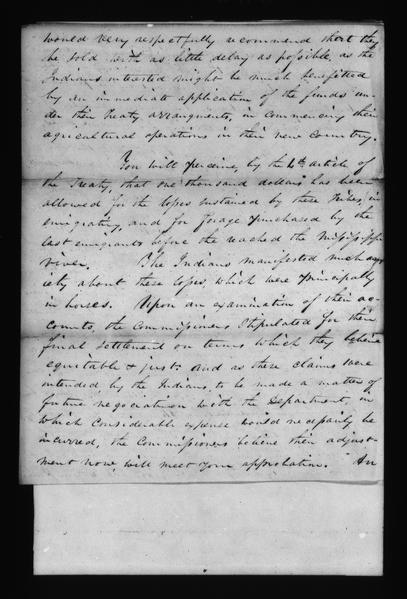 would very respectfully recommend that they
be sold with as little delay as possible, as the
Indians interested might be much benefitted
by an immediate application of the funds un-
der their Treaty arrangements, in commencing their
agricultural operations in their new country.
You will perceive, by the 6th article of
the Treaty, that one thousand dollars has been
allowed for the losses sustained by these Tribes, in
emigrating, and for forage purchased by the
last emigrants before the reached the Missisippi
river. The Indians manifested much anx-
iety about these losses, which were principally
in horses. Upon an examination of their ac-
counts, the Commissioners stipulated for their
final settlement on terms which they believe
equitable & just: and as these claims were
intended by the Indians, to be made a matter of
future negociation with the Department, in
which considerable expense would necessarily be
incurred, the Commissioners believe their adjust-
ment now, will meet your approbation. An